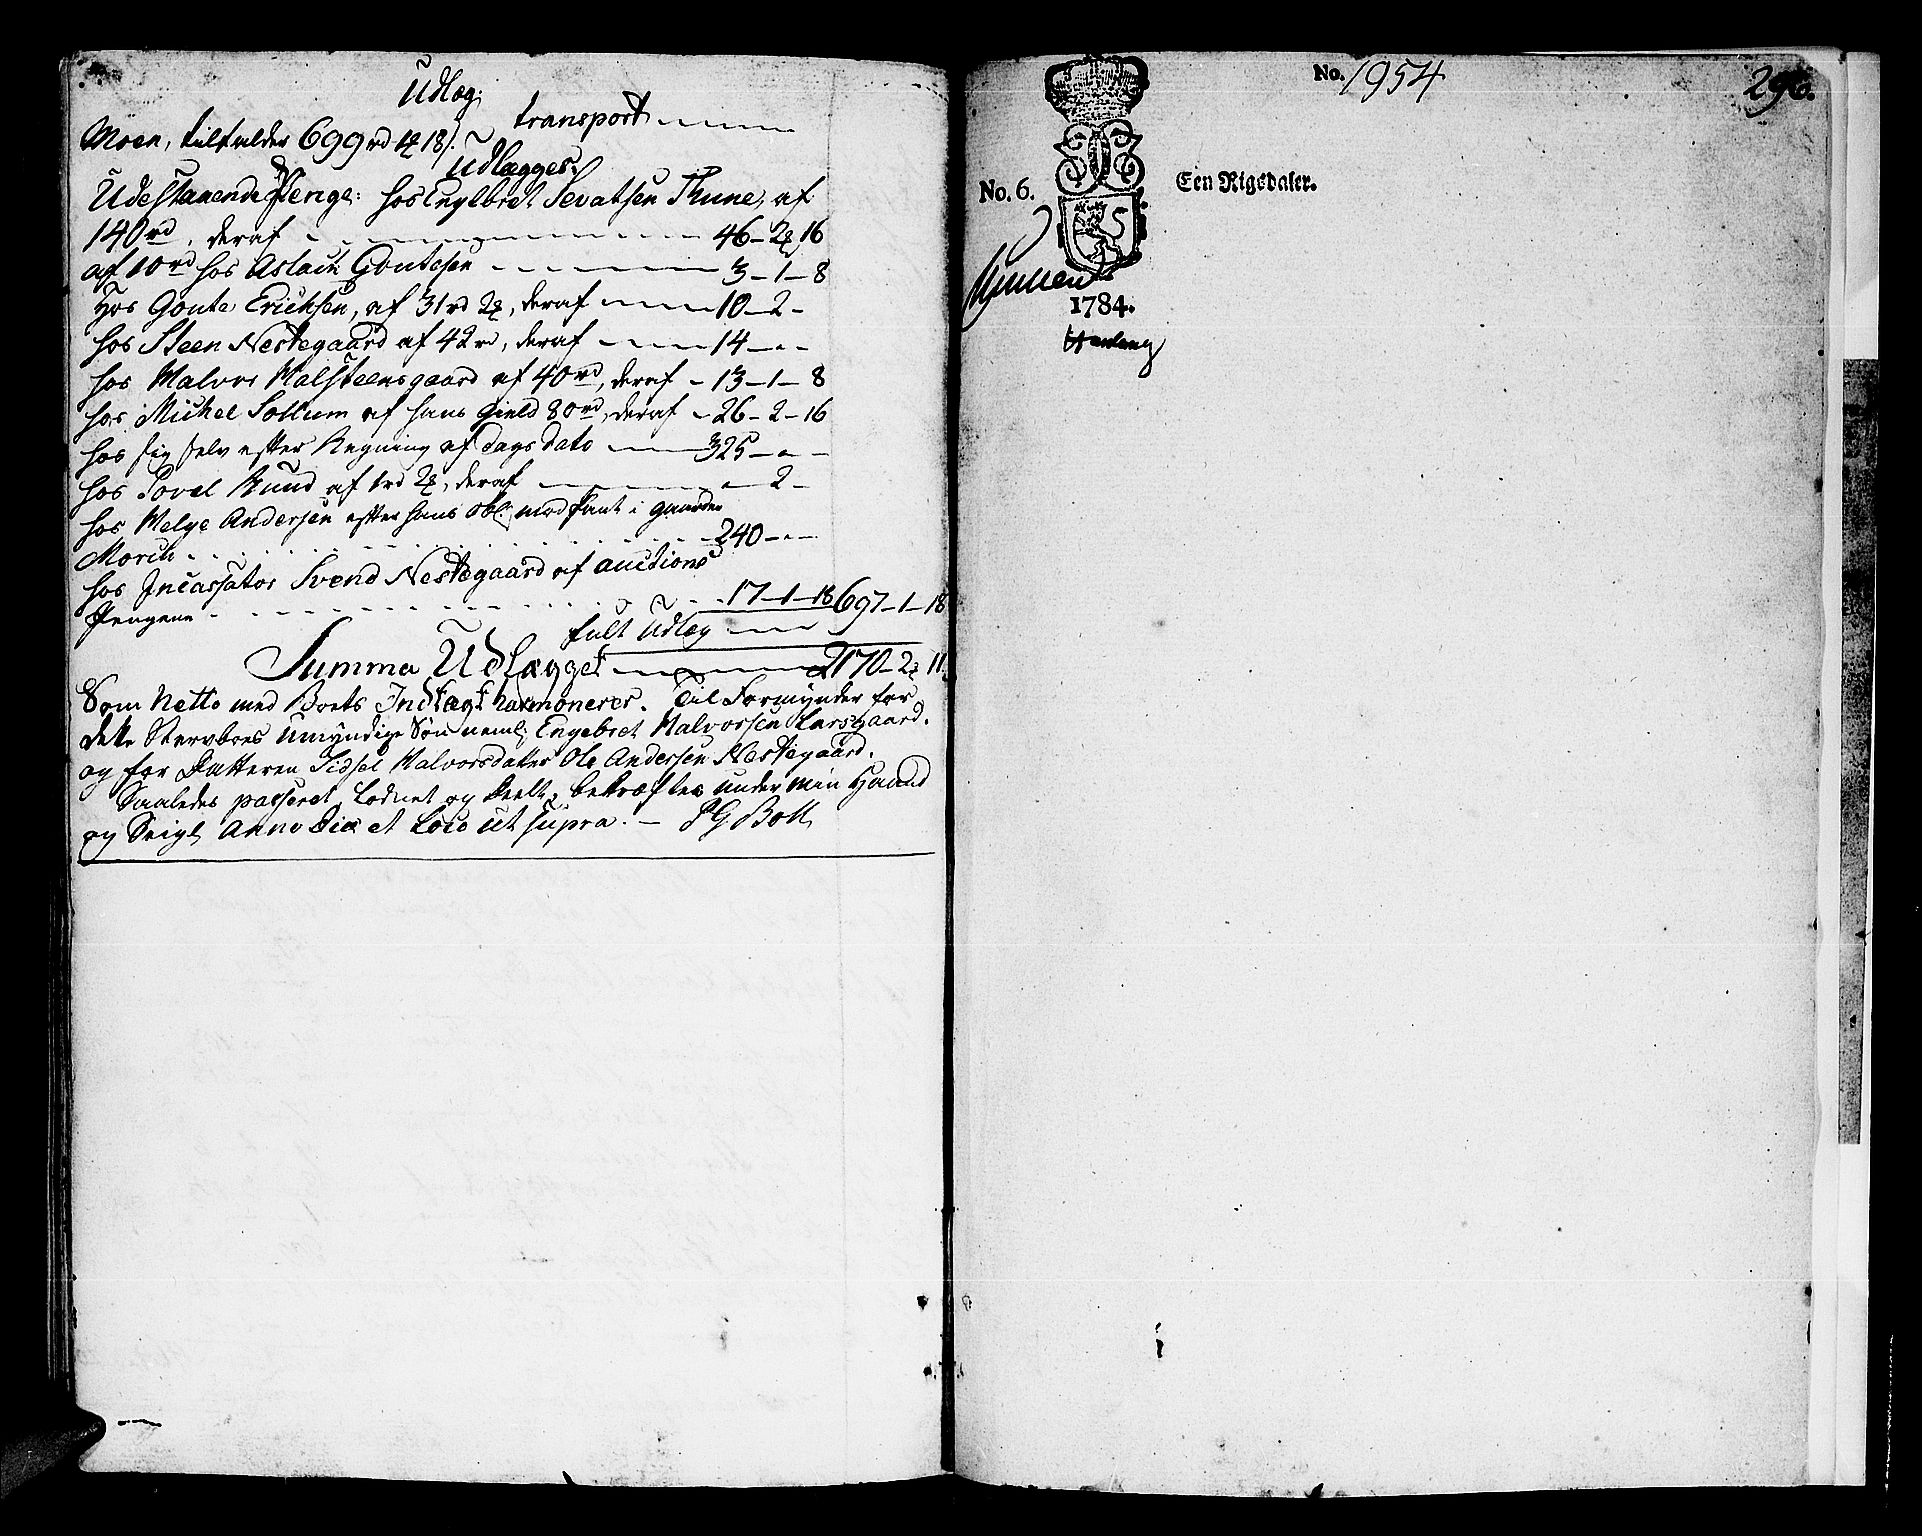 Udlæg:
transport
Moen, tilfalder 699 rd 1 18 s.
Udlægges:
Udestaaende Penge: hos Engelbret Sevatsen Thune, af
140 rd, deraf 46 - 2 16
af 10 rd hos Aslach Gontesen 3 - 1 - 8
Hos Gonte Ericksen, af 31 rd 2, deraf 10 - 2 -
hos Steen Nestegaard af 42 rd, deraf 14 - - -
hos Halvor Halsteensgaard af 40 rd, deraf - 13 - 1 - 8
hos Michel Sollum af hans Gield 80 rd, deraf - 26 - 2 - 16
hos sig selv efter Regning af Dags Dato 325 - - -
hos Povel Ruud af 1 rd 2, deraf - 2 -
hos Helge Andersen efter hans obl: med Pant i gaarden
Morch 240 - - -
hos Incassator Svend Nestegaard af auctions
Pengene 17 - 1 - 18 697 - 1 - 18
fult Udlæg
Summa Udlægget 2170 - 2 11
Som Netto med Boets Indtægt harmonerer. Til Formynder for
dette Stervboes Umyndige Søn neml: Engebret Halvorsen Larsgaard.
og for Datteren Sidsel Halvorsdatter Ole Andersen Nestegaard.
Saaledes passeret, Lodnet og Deelt, bekræftes under min Haand
og Seigl Anno Die et Loco ut supra. - P G Boll
No. 1954
296.
No. 6.
Een Rigsdaler.
1784.